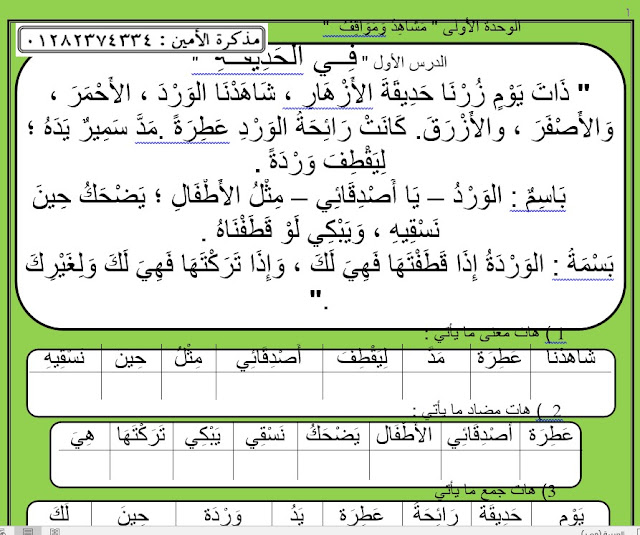 1
الوحدة الأولى " مَشَاهِدُ وَمَوَاقِفُ "
مذكرة الأمين : ٠١٢٨٢٣٧٤٣٣٤
الدرس الأول " فِــي الحَدِيقَــةِ "
" ذَاتَ يَوْمٍ زُرْنَا حَدِيقَةَ الأَزْهَارِ ، شَاهَدْنَا الوَرْدَ ، الأَحْمَرَ ،
وَالأَصْفَرَ ، والأَزْرَقَ. كَانَتْ رَائِحَةُ الوَرْدِ عَطِرَةً .مَدَّ سَمِيرٌ يَدَهُ ؛
لِيَقْطِفَ وَرْدَةً .
بَاسِمٌ : الوَرْدُ – يَا أَصْدِقَائِي – مِثْلُ الأَطْفَالِ ؛ يَضْحَكُ حِينَ
نَسْقِيهِ ، وَيَبْكِي لَوْ قَطَفْنَاهُ .
بَسْمَةُ : الوَرْدَةُ إِذَا قَطَفْتَهَا فَهِيَ لَكَ ، وَإِذَا تَرَكْتَهَا فَهِيَ لَكَ وَلِغَيْرِكَ
." 
1 ) هات معنى ما يأتي :
شَاهَدْنَا عَطِرَة مَدَّ لِيَقْطِفَ أَصْدِقَائِي مِثْلُ حِينَ نَسْقِيهِ
2 ) هات مضاد ما يأتي :
عَطِرَة أَصْدِقَائِي الأَطْفَال يَضْحَكُ نَسْقِي يَبْكِي تَرَكْتَهَا هِيَ
3) هات جمع ما يأتي
يَوْم حَدِيقَة رَائِحَة عَطِرَة يَدُ وَرْدَة حِينَ لَكَ